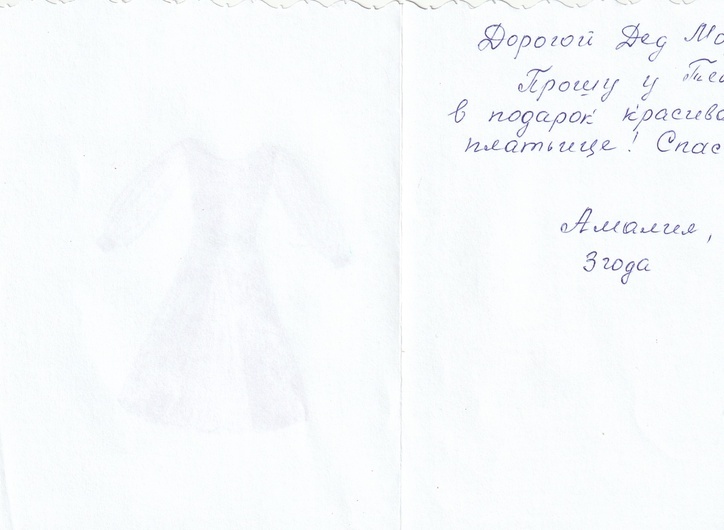 Дорогой Дед Мо
Прошу у Теб
в подарок красиво
платьице! Спас
Амалия,
3 года